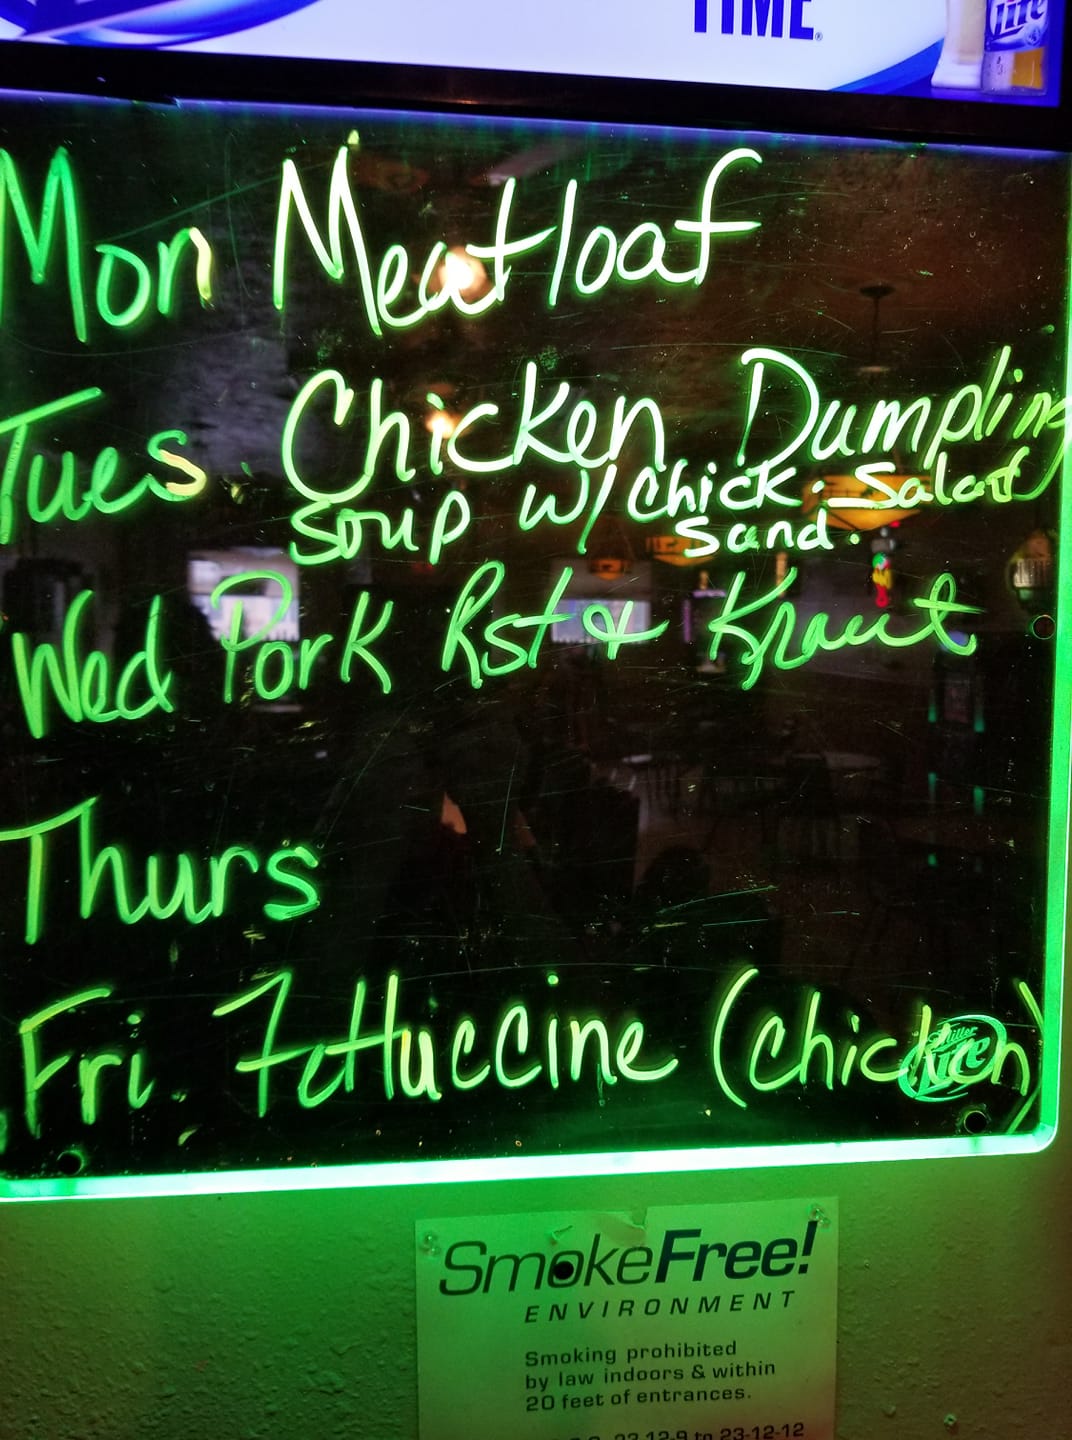 TIME.
Lite
Mon Meatloaf
Tues. Chicken Dumpling
Soup w/ Chick. Salad
Sand.
Wed Pork Rst & Kraut
Thurs
Fri. Fettuccine (chicken)
Miller
Lite
SmokeFree!
ENVIRONMENT
Smoking prohibited
by law indoors & within
20 feet of entrances.
23-12-9 to 23-12-12